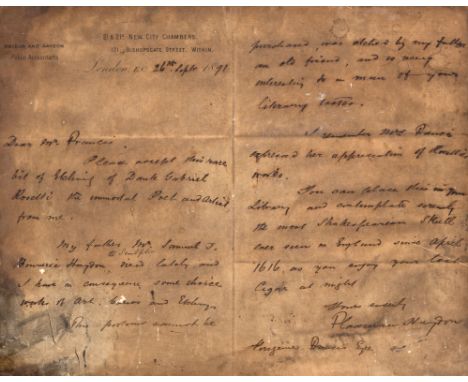 21 & 21A NEW CITY CHAMBERS,
121, BISHOPSGATE STREET, WITHIN,
Public Accountants
London, E.C. 26th Sept 1891
Dear Mr. Francis.
Please accept this rare
bit of Etching of Dante Gabriel
Rosetti the immortal Poet and Artist
from me.
My father Mr. Samuel J.
Sculptor
Haydon, died lately and
I have in consequence some choice
works of Art, and Etchings
This portrait cannot be
purchased, was etched by my father
an old friend, and is very
interesting to a man of your
Literary tastes.
I remember Mrs.
expressed her appreciation of Rosetti's
works.
You can place this in your
Library and contemplate
the most Shakespearian Skull
ever seen in England since April
1616, as you enjoy your
Cigar at night
Yours
Haydon
Esqr